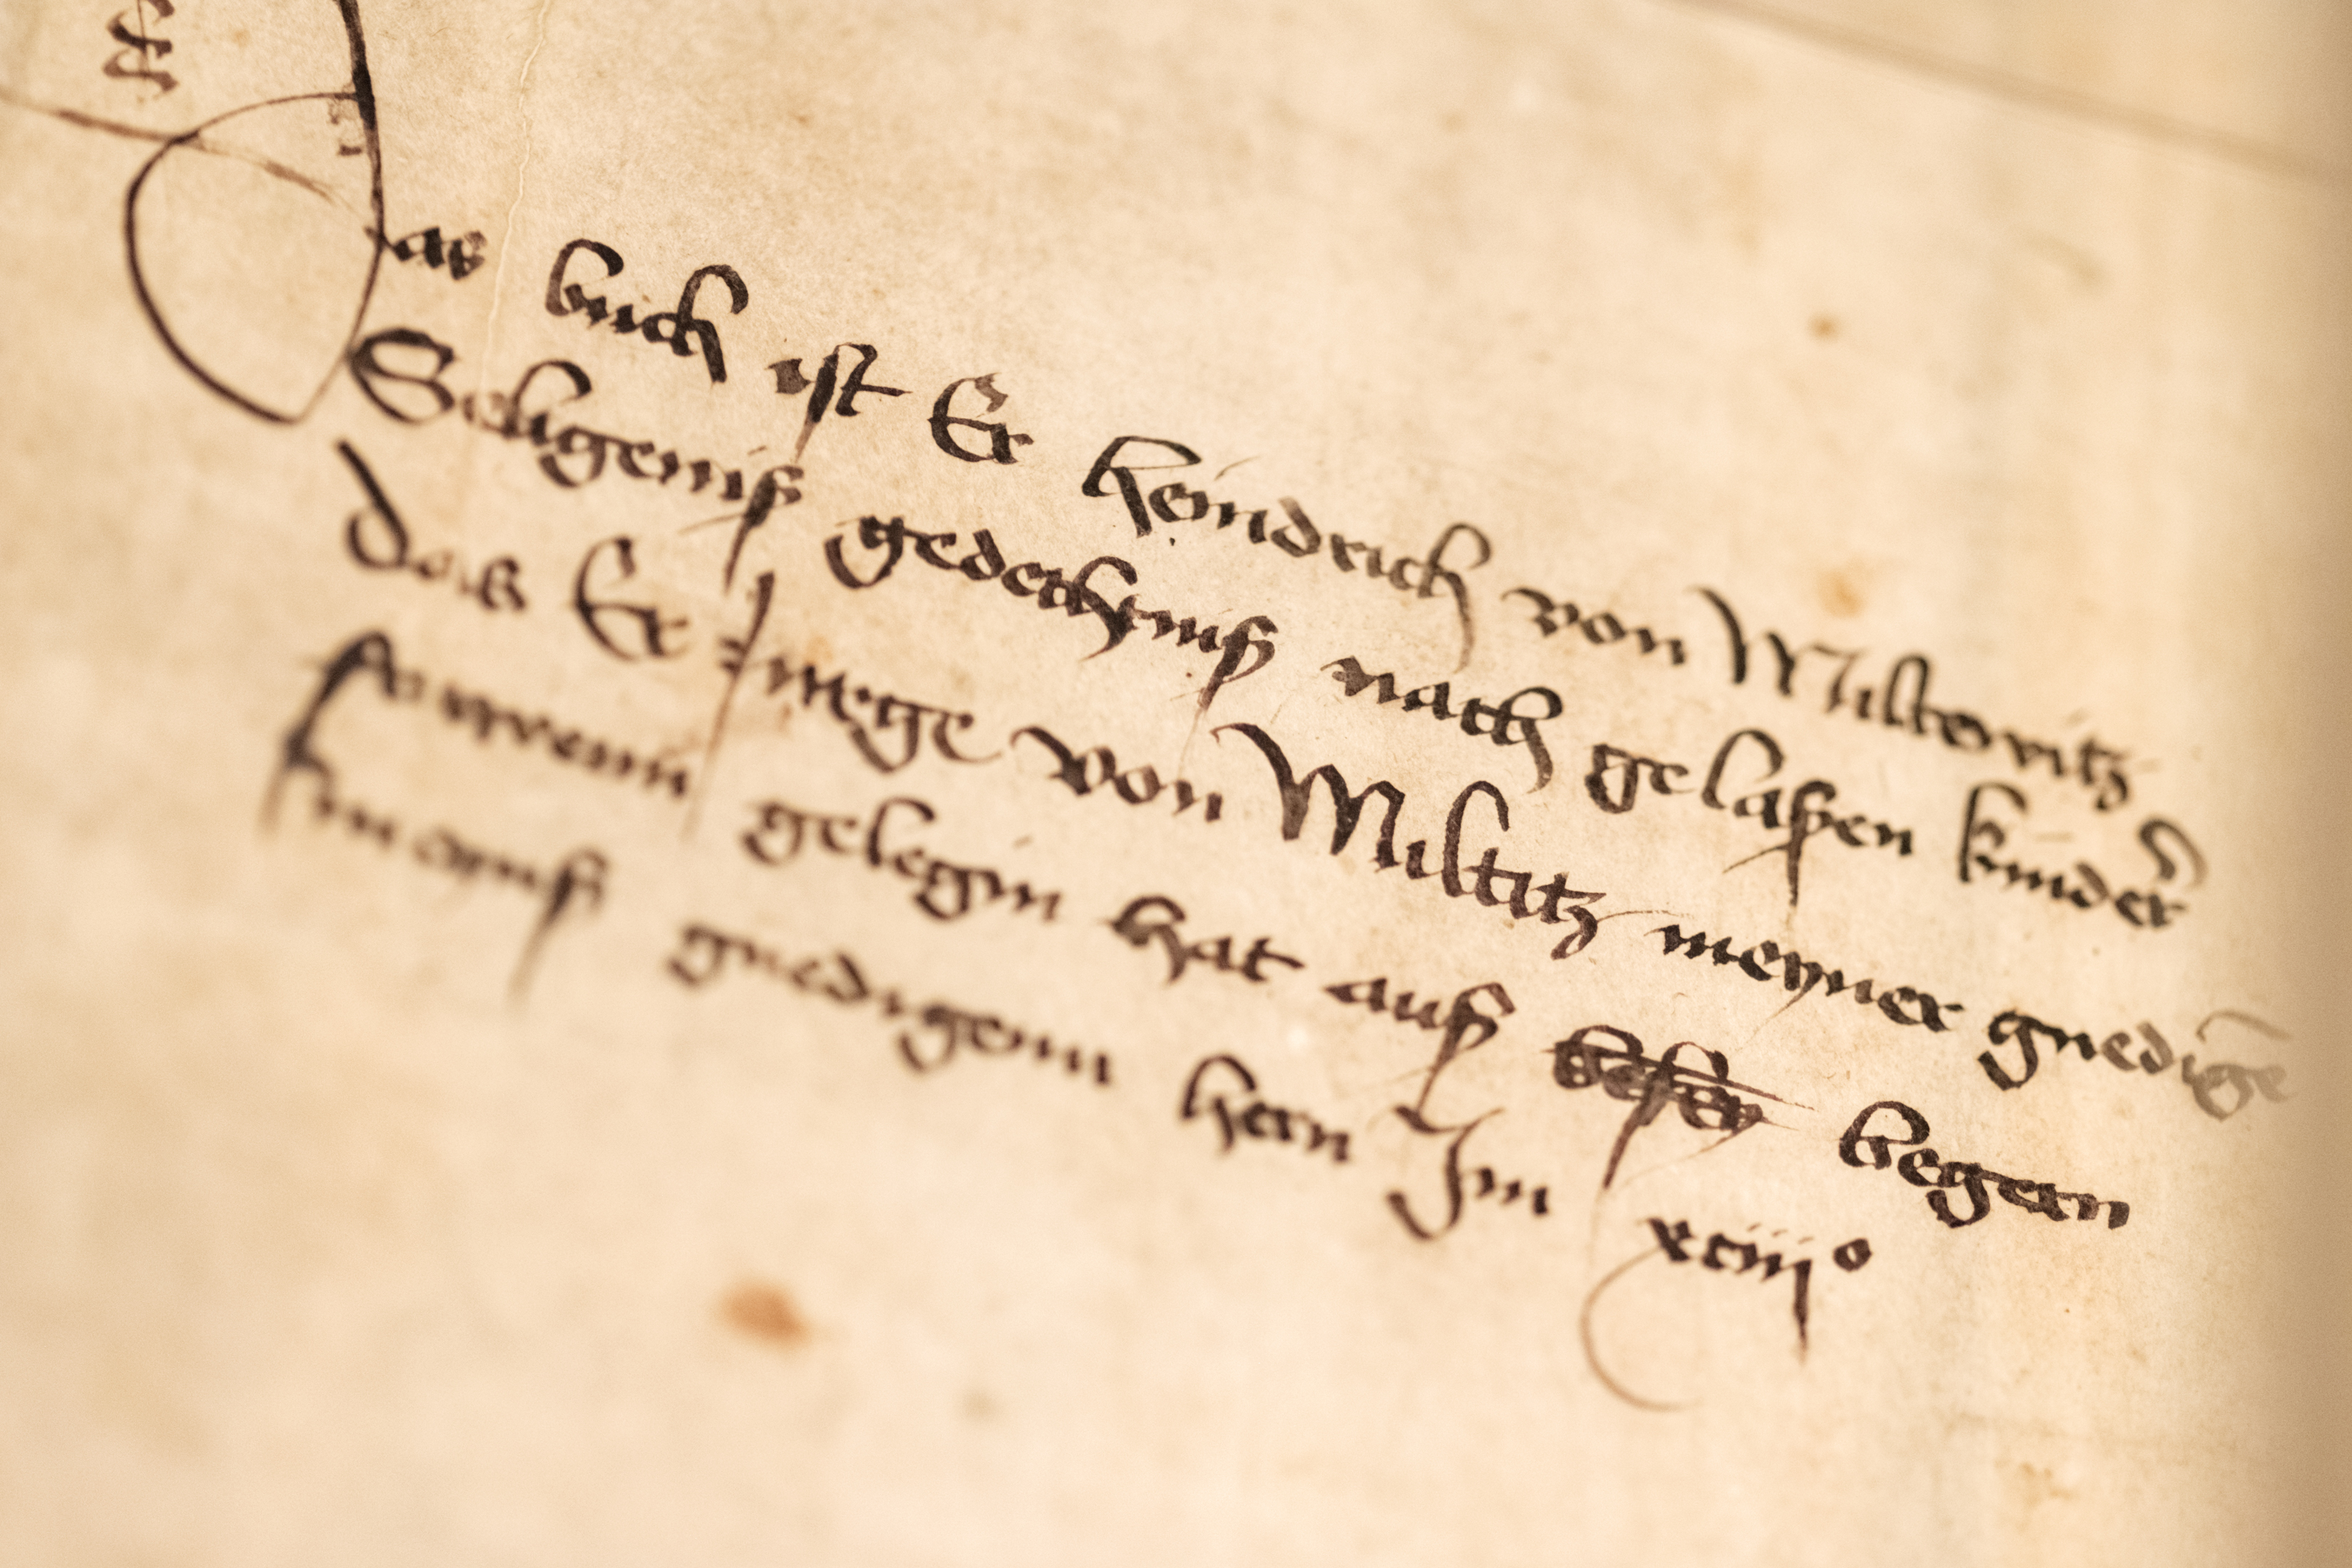 Das buch ist Er heindrich von Miltevitz
Seligeniß gedechtniß nach gelaßen kinder
das Er von Miltitz meyner gnedige
frawenn gelegin hat auß begern
meynß gnedigem hern Im xciiijº